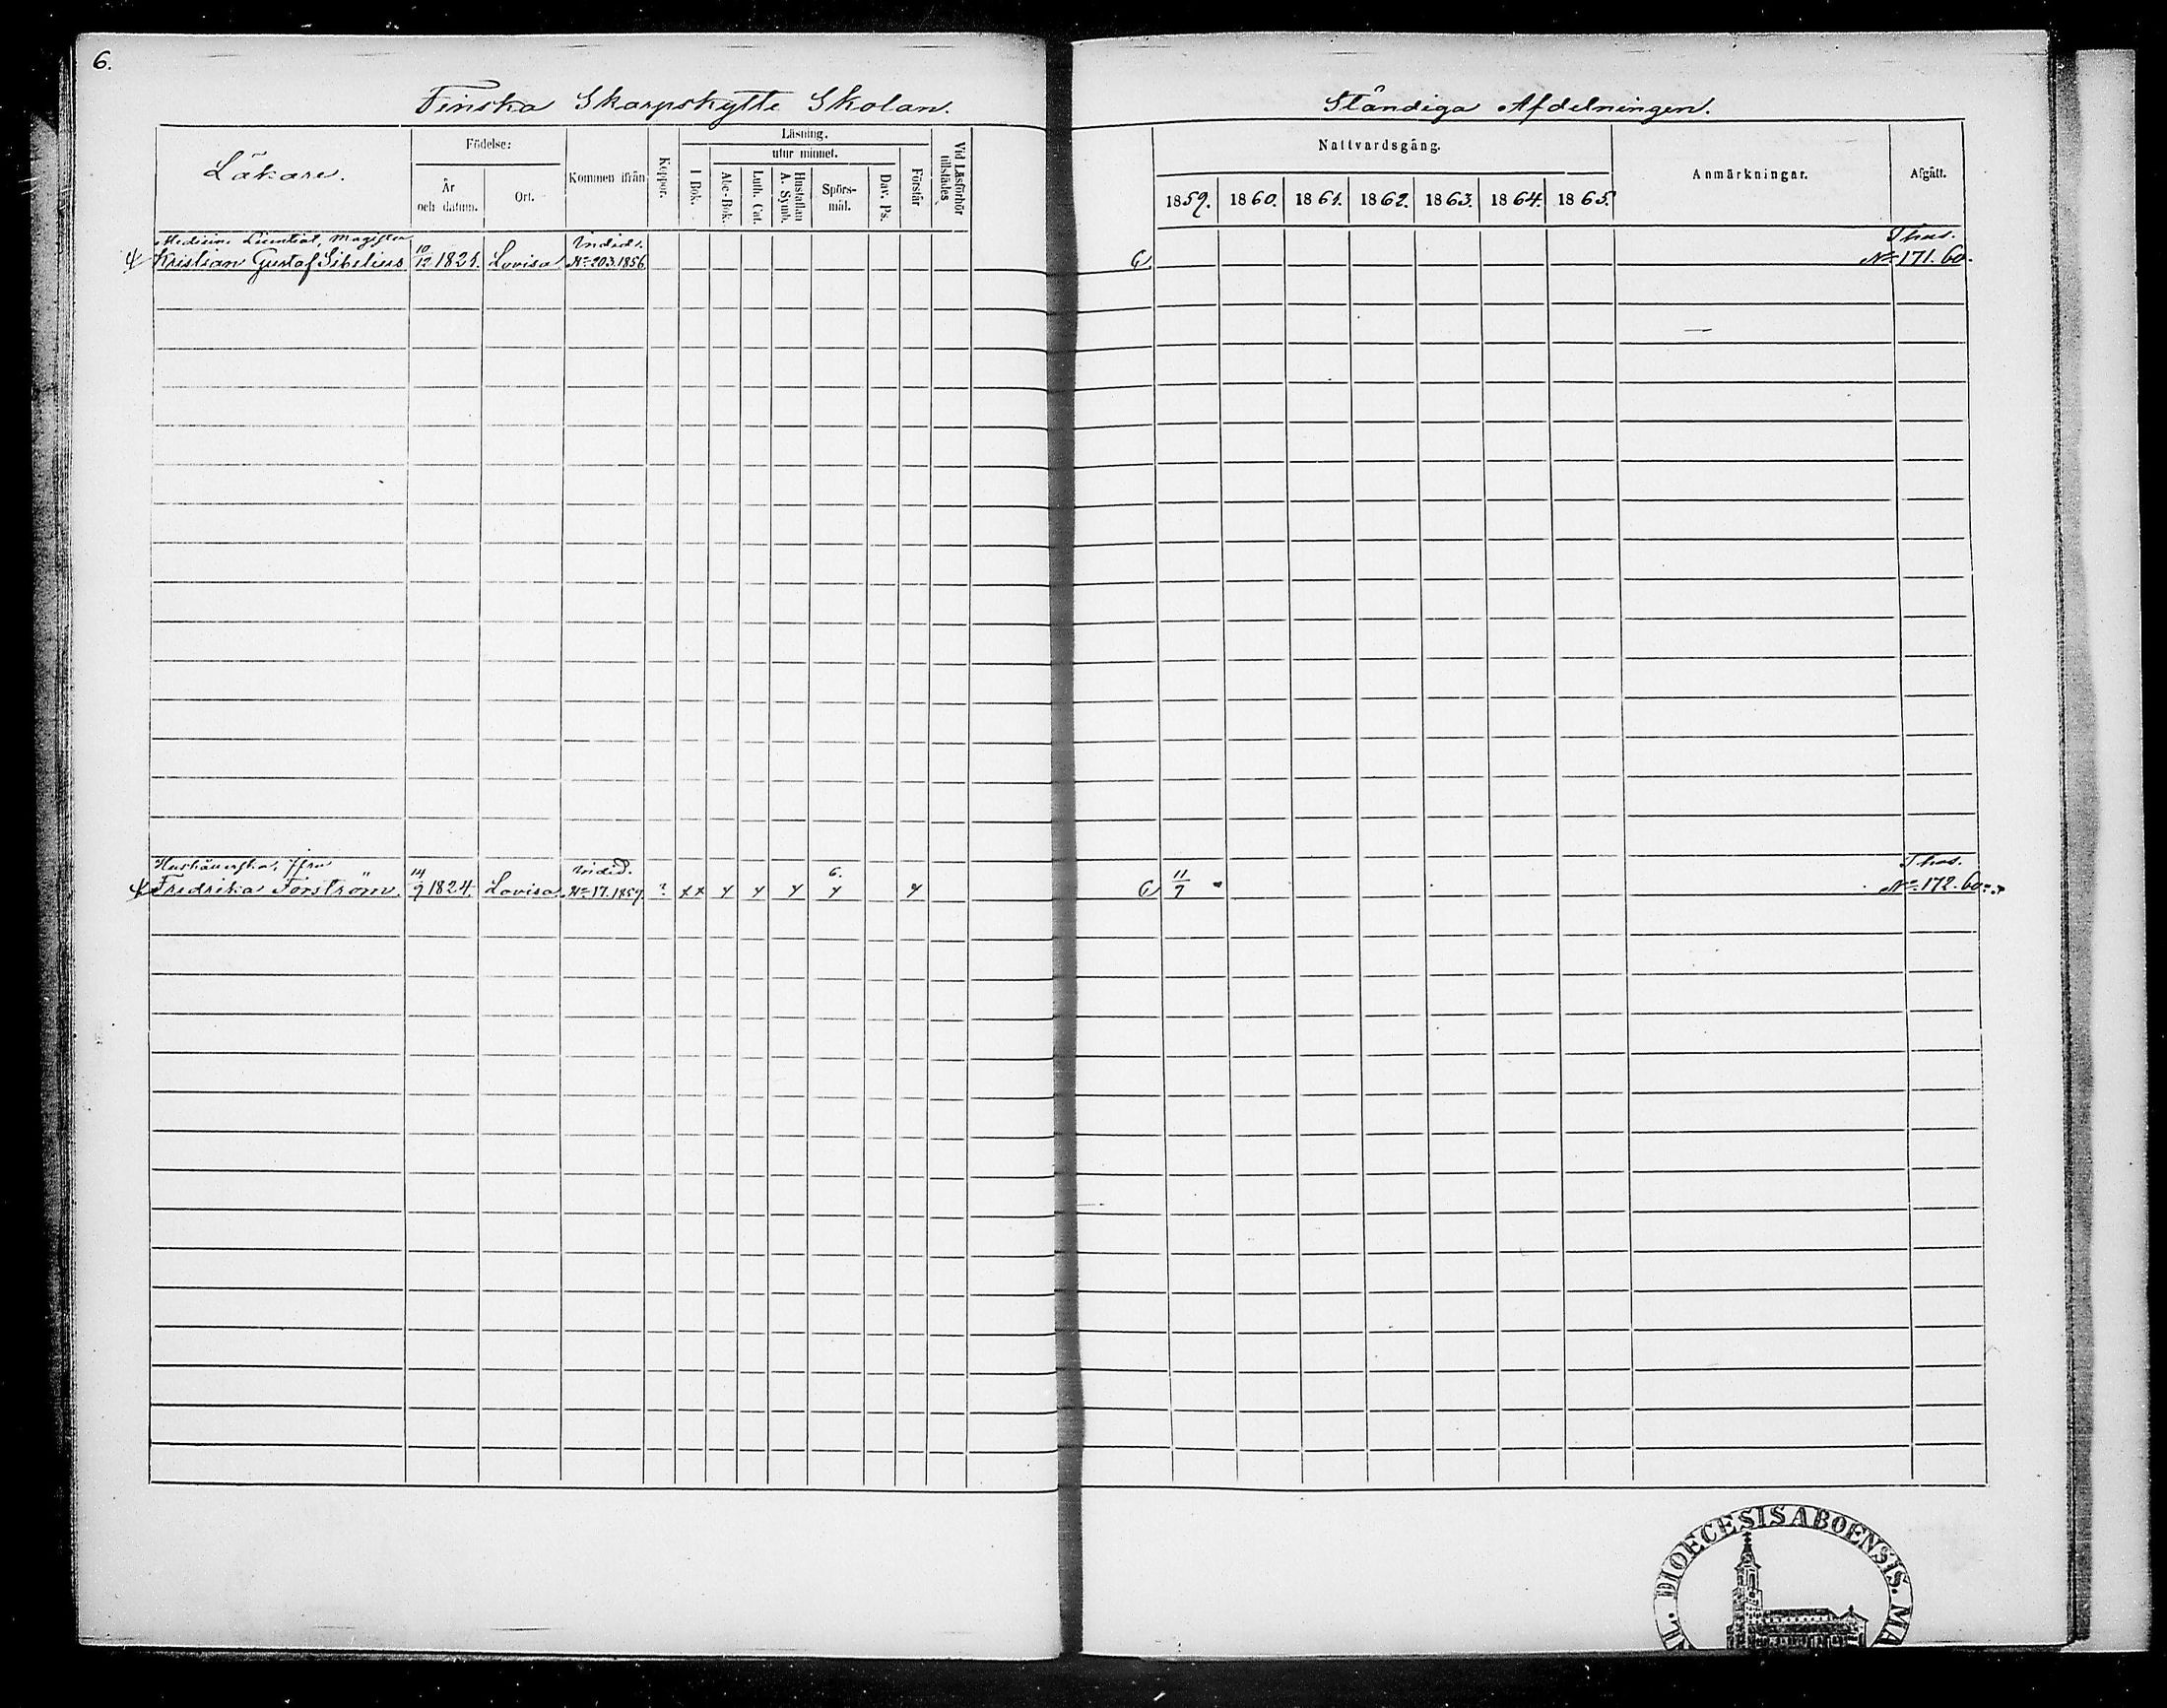 6.
Finska Skarpskytte Skolan.
Ståndiga Afdelningen.
Läkare.
Födelse:
År och datum.
Ort.
Kommen ifrån
Koppor.
Läsning.
I Bok.
utur minnet.
Abc-Bok.
Luth. Cat.
Hustaflan A. Symb.
Spörs-mål.
Dav. Ps.
Förstår
Vid Läsförhör tillstädes
Nattvardsgång.
1859. 1860. 1861. 1862. 1863. 1864. 1865.
Anmärkningar.
Afgått.
Medicine Licentiat, Magister
Kristian Gustaf Sibelius 10/12 1821. Lovisa No 203.1856 No 171.60.
Hushållerska, Jfru
Fredrika Forström. 14/9 1824. Lovisa No 17.1857. ? 6. 11/7 No 172.60.
DIOECESIS ABOENSIS. MA